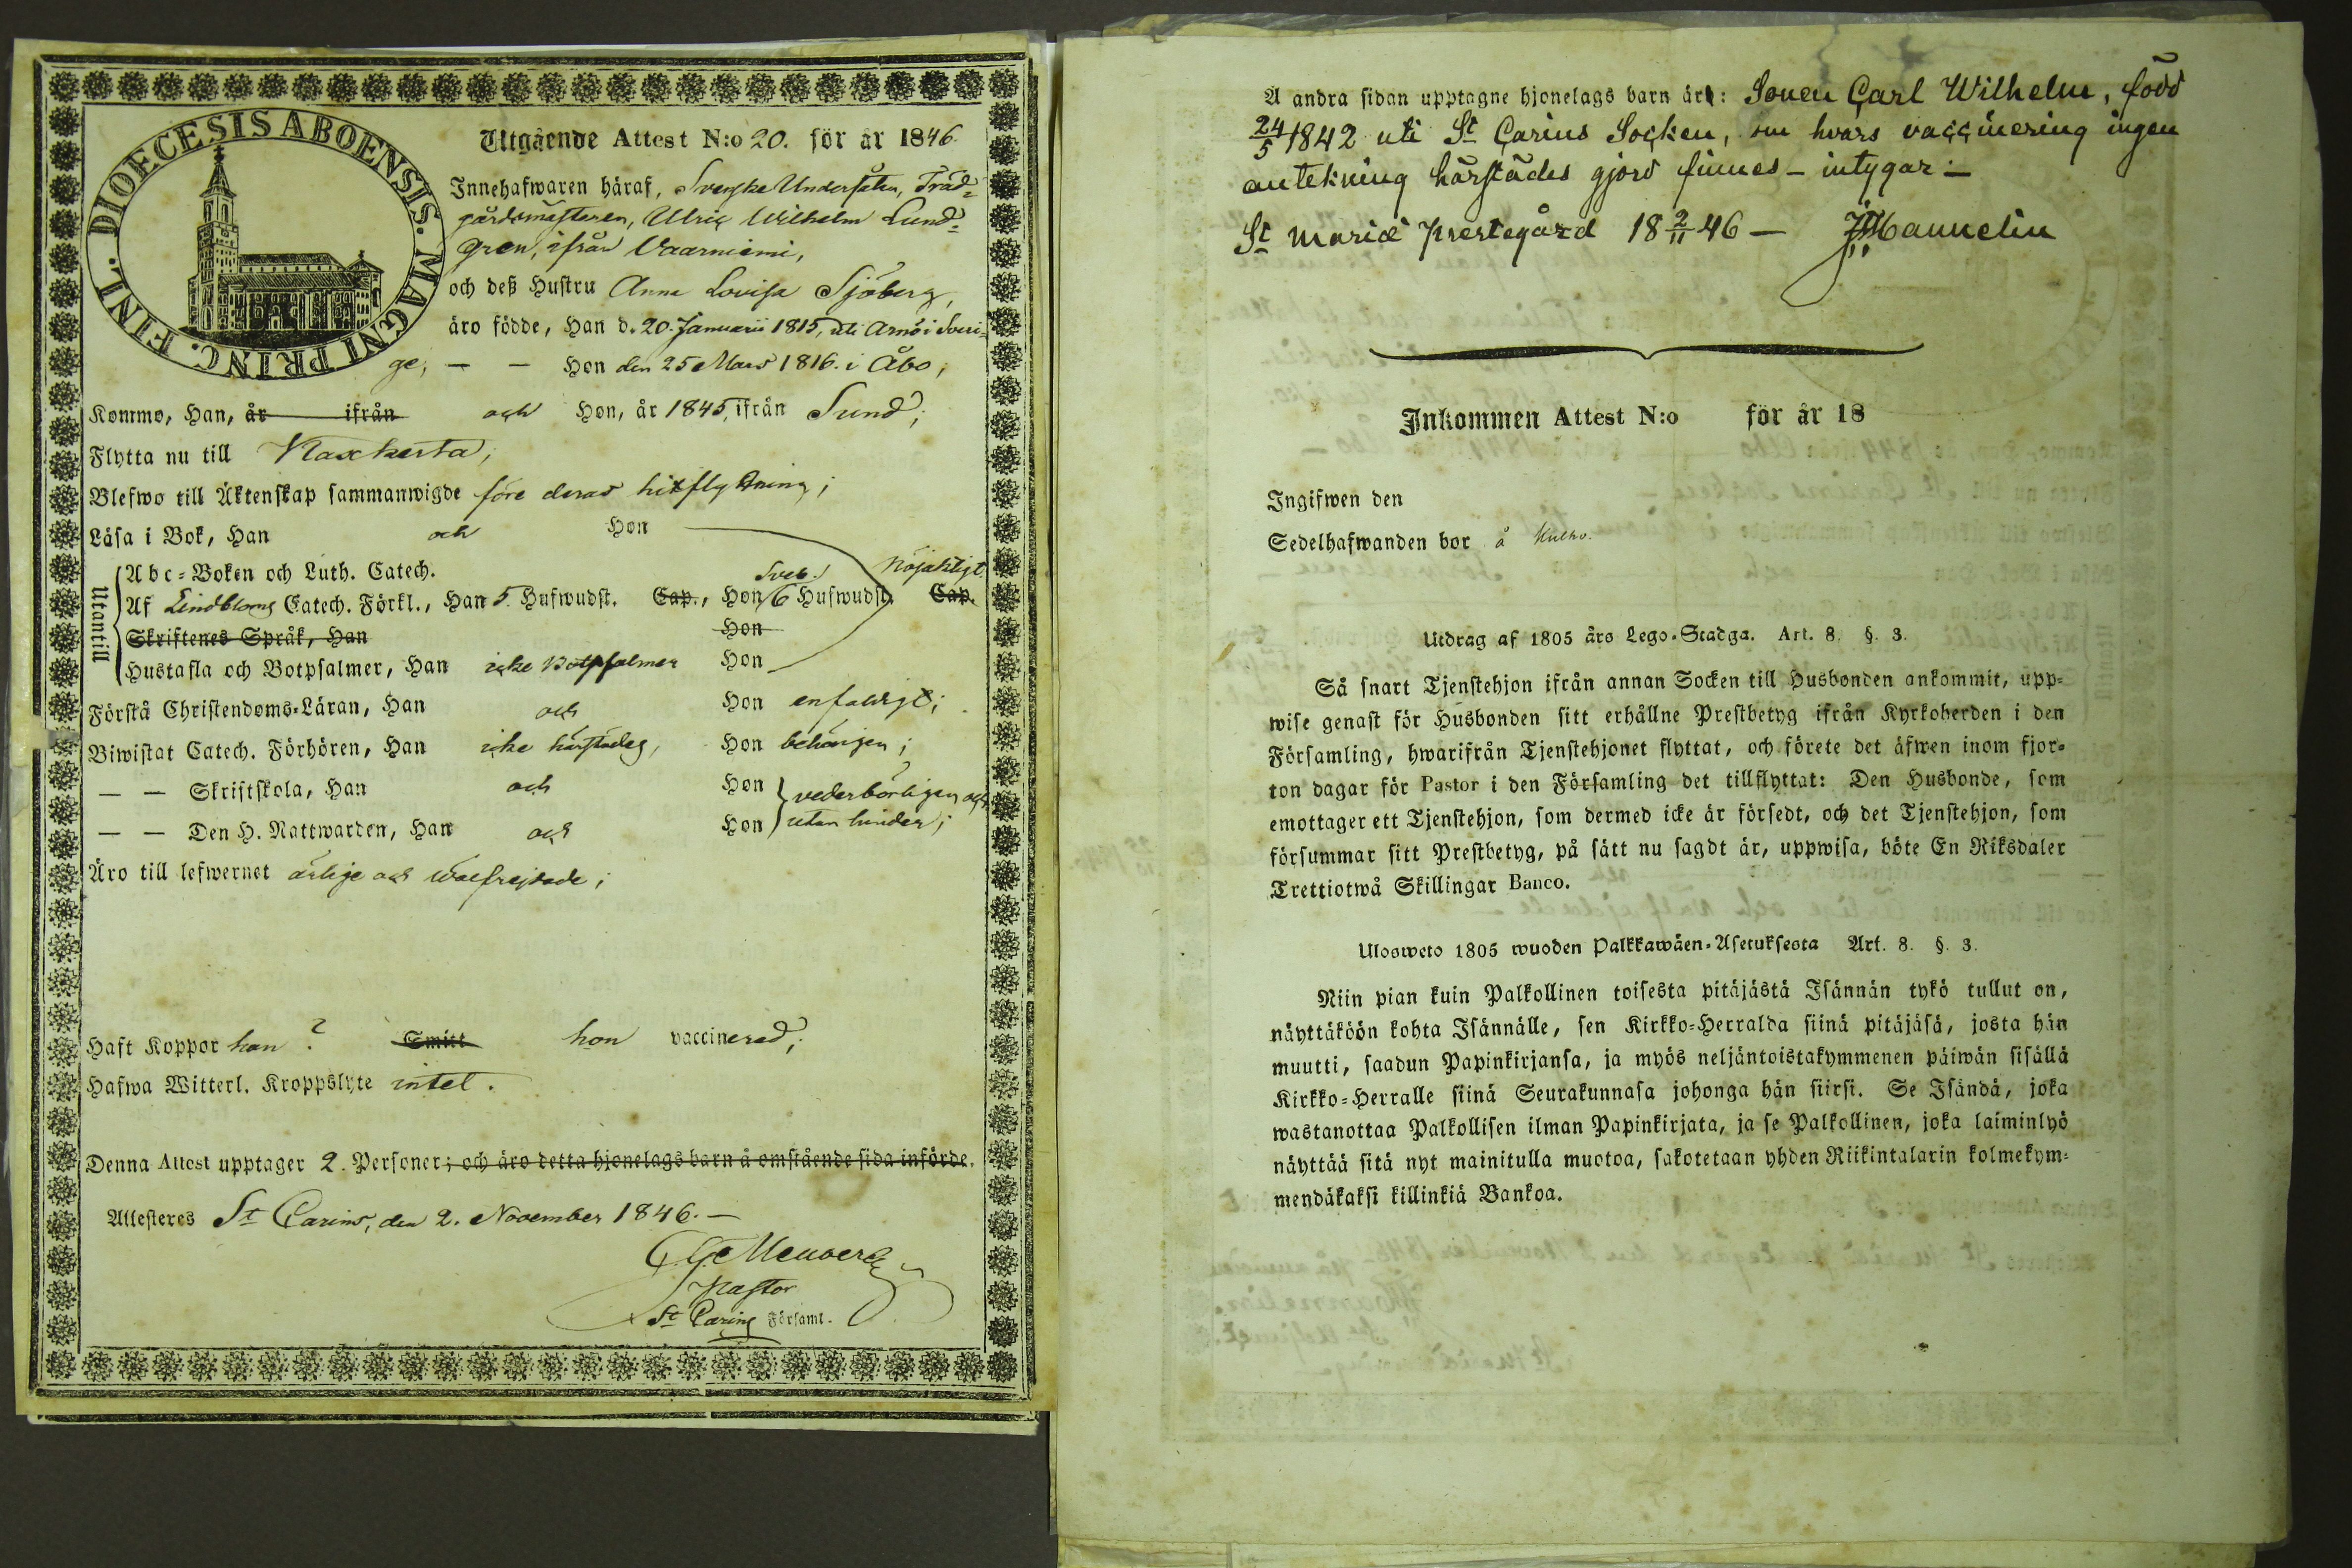 DIOECESIS ABOENSIS. MAGNI PRINC. FINL.
Utgående Attest N:o 20. för år 1846.
Innehafwaren häraf, Svenske Undersåten, Träd-
gårdsmästaren, Ulric Wilhelm Lund-
gren, ifrån Vaarniemi,
och deß Hustru Anna Lovisa Sjöberg,
äro födde, Han d. 20. Januarii 1815, uti Arnö i Sveri-
ge, — — Hon den 25 Mars 1816. i Åbo,
Kommo, Han, år ifrån och Hon, år 1845, ifrån Sund;
Flytta nu till Naxkerta,
Blefwo till Äktenskap sammanwigde före deras hitflyttning;
Läsa i Bok, Han och Hon
Utantill
Abc-Boken och Luth. Catech. Sveb. nöjaktigt
Af Lindbloms Catech. Förkl., Han 5 Hufwudst. Cap., Hon 6 Hufwudst. Cap.
Skriftenes Språk, Han Hon
Hustafla och Botpsalmer, Han icke Botpsalmer Hon
Förstå Christendoms-Läran, Han och Hon enfaldigt;
Biwistat Catech. Förhören, Han icke härstädes, Hon behörigen;
— — Skriftskola, Han och Hon vederbörligen och
— — Den H. Nattwarden, Han och Hon utan hinder;
Äro till lefwernet ärlige och wälfrejdade;
Haft Koppor han ? Smitt hon vaccinerad;
Hafwa Witterl. Kroppslyte intet.
Denna Attest upptager 2. Personer; och äro detta hjonelags barn å omstående sida införde.
Attesteres St Carins, den 2. November 1846. —
Pastor
St Carins Församl.
Å andra sidan upptagne hjonelags barn är: Sonen Carl Wilhelm, född
24/5 1842 uti St Carins Socken, om hvars vaccinering ingen
antekning härstädes gjord finnes — intygar: —
St Mariæ Prestegård 18 2/11 46 — Mannelin
Inkommen Attest N:o för år 18
Ingifwen den
Sedelhafwanden bor å
Utdrag af 1805 års Lego-Stadga. Art. 8. §. 3.
Så snart Tjenstehjon ifrån annan Socken till Husbonden ankommit, upp-
wise genast för Husbonden sitt erhållne Prestbetyg ifrån Kyrkoherden i den
Församling, hwarifrån Tjenstehjonet flyttat, och förete det äfwen inom fjor-
ton dagar för Pastor i den Församling det tillflyttat: Den Husbonde, som
emottager ett Tjenstehjon, som dermed icke är försedt, och det Tjenstehjon, som
försummar sitt Prestbetyg, på sätt nu sagdt är, uppwisa, böte En Riksdaler
Trettiotwå Skillingar Banco.
Ulosweto 1805 wuoden Palkkawäen-Asetuksesta Art. 8. §. 3.
Niin pian kuin Palkollinen toisesta pitäjästä Isännän tykö tullut on,
näyttäköön kohta Isännälle, sen Kirkko-Herralda siinä pitäjäsä, josta hän
muutti, saadun Papinkirjansa, ja myös neljäntoistakymmenen päiwän sisällä
Kirkko-Herralle siinä Seurakunnasa johonga hän siirsi. Se Isändä, joka
wastanottaa Palkollisen ilman Papinkirjata, ja se Palkollinen, joka laiminlyö
näyttää sitä nyt mainitulla muotoa, sakotetaan yhden Riikintalarin kolmekym-
mendäkaksi killinkiä Bankoa.